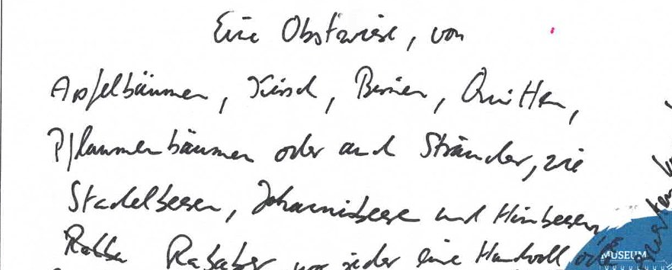 Eine Obstwiese, von
Apfelbäumen, Kirsch, Birnen, Quitten,
Pflaumenbäumen oder auch Sträucher, wie
Stachelbeeren, Johannisbeere und Himbeeren
Rabarber vor jeder eine Handvoll
MUSEUM